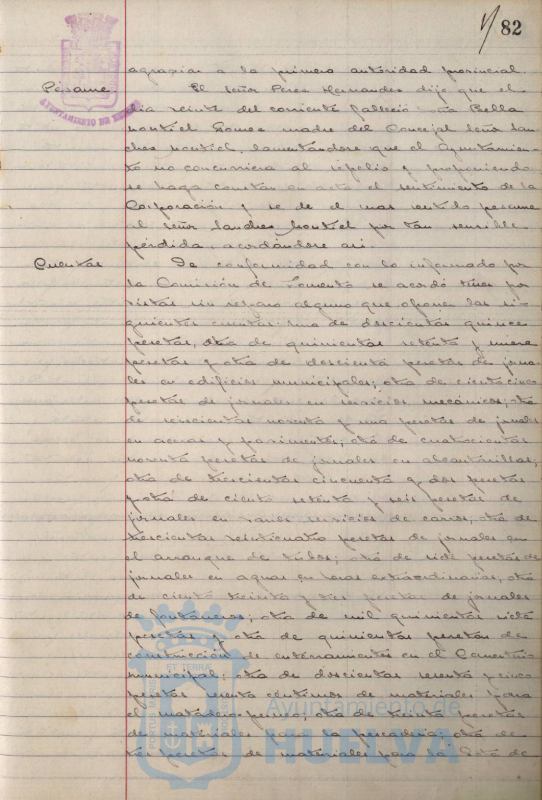 82
agraviar a la primera autoridad provincial.
Pésame
El señor Perez Hernandez dije que el
dia veinte del corriente falleció doña Bella
Montiel Gomez madre del Concejal Señor San-
chez Montiel, lamentandose que el Ayuntamien-
to no concurriera al sepelio y proponiendo
se haga constar en acta el sentimiento de la
Corporación y se de el mas sentido pesame
al señor Sanchez Montiel por tan sensible
pérdida, acordándose asi.
Cuentas
De conformidad con lo informado por
la Comisión de Fomento se acordó
sin reparo alguno que oponer las si-
guientes cuentas: una de doscientas quince
pesetas, otra de quinientas setenta y nueve
pesetas y otra de doscienta pesetas de jorna-
les en edificios municipales; otra de ciento cinco
pesetas de jornales en servicios mecánicos; otra
de seiscientas noventa y una pesetas de jornales
en aceras y pavimentos; otra de cuatrocientas
noventa pesetas de jornales en alcantarillas;
otra de trescientas cincuenta y dos pesetas
y otra de ciento setenta y seis pesetas de
jornales en varios servicios de carros; otra de
trescientas veinticuatro pesetas de jornales en
el arranque de tubos; otra de siete pesetas de
jornales en aguas en horas extraordinarias; otra
de ciento treinta y tres pesetas de jornales
de fontaneros; otra de mil quinientas siete
pesetas y otra de quinientas pesetas de
construcción de enterramientos en el Cementerio
municipal; otra de doscientas sesenta y cinco
pesetas sesenta centimos de materiales para
el matadero; otra de treinta pesetas
de materiales para la pescaderia; otra de
tres pesetas de materiales para la de
AYUNTAMIENTO DE HUELVA
PORTUS MARIS ET TERRAE CUSTODIA
Ayuntamiento de
HUELVA